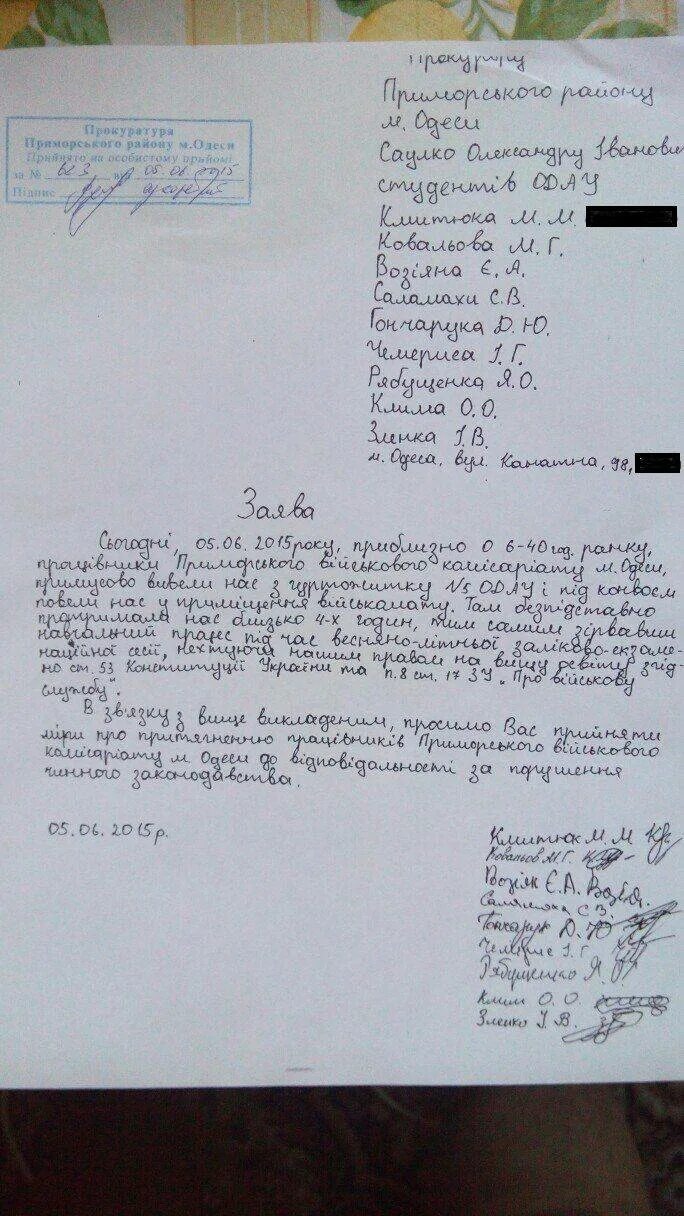 Прокурору
Приморського району
м. Одеси
Саулко Олександру Іванович
студентів ОДАУ
Клитюка М. М.
Ковальова М. Г.
Возіяна Є. А.
Саламахи С. В.
Гончарука Д. Ю.
Чемериса І. Г.
Рябущенка Я. О.
Клима О. О.
Зленка І. В.
м. Одеса, вул. Канатна, 98,
Прокуратура
Приморського району м.Одеси
Прийнято на особистому прийомі
за № 623 від 05.06.2015
Підпис
Заява
Сьогодні, 05.06.2015року, приблизно о 6-40год. ранку,
працівники Приморського військового комісаріату м. Одеси,
примусово вивели нас з гуртожитку №5 ОДАУ і під конвоєм
повели нас у приміщення військкомату. Там безпідставно
протримали нас близько 4-х годин, тим самим зірвавши
навчальний процес під час весняно-літньої заліково-екзаме-
наційної сесії, нехтуючи нашим правом на вищу освіту згід-
но ст. 53 Конституції України та п.8 ст. 17 ЗУ „Про військову
службу".
В зв'язку з вище викладеним, просимо Вас прийняти
міри про притягненню працівників Приморського військового
комісаріату м. Одеси до відповідальності за порушення
чинного законодавства.
05.06.2015р.
Клитюк М. М
Ковальов М. Г.
Возіян Є. А.
Саламаха С. В.
Гончарук Д. Ю
Чемерис І. Г
Рябущенко Я.
Клим О. О.
Зленко І. В.